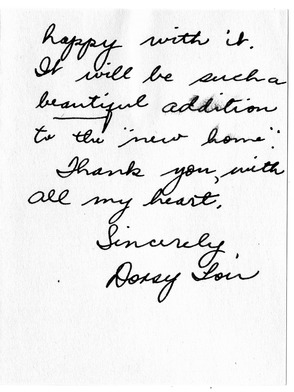 happy with it.
It will be such a
beautiful addition
to the "new home".
Thank you, with
all my heart,
Sincerely